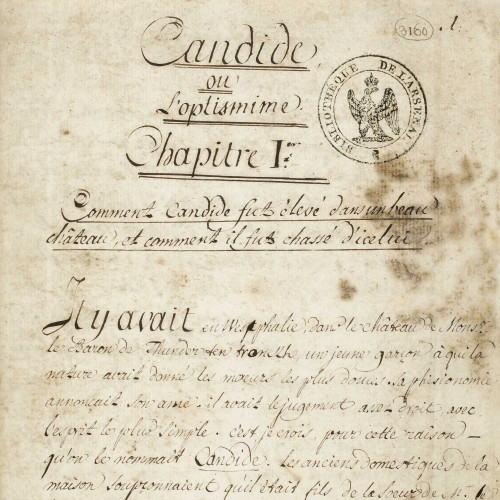 3160
1.
Candide,
ou
L'optismime.
Chapitre Ier
BIBLIOTHÈQUE DE L'ARSENAL
Comment Candide fut élevé dans un beau
château, et comment il fut chassé d'icelui.
Il y avait en Westphalie, dans le château de Monsr.
le Baron de Thunder ten tronckh, un jeune garçon à qui la
nature avait donné les mœurs les plus douces. sa phisionomie
annonçait son ame. il avait le jugement assez droit, avec
l'esprit le plus simple. c'est, je crois, pour cette raison
qu'on le nommait Candide. les anciens domestiques de la
maison soupçonnaient qu'il était fils de la sœur de Mr. le